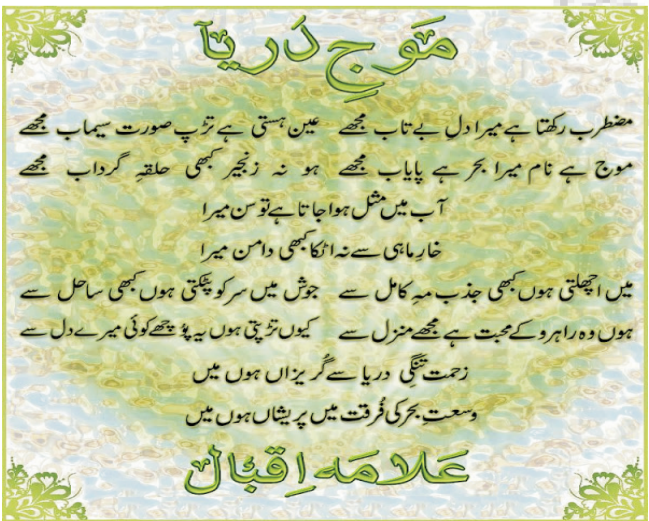 موجِ دَریا
مضطرب رکھتا ہے میرا دلِ بے تاب مجھے عین ہستی ہے تڑپ صورتِ سیماب مجھے
موج ہے نام میرا بحر ہے پایاب مجھے ہو نہ زنجیر کبھی حلقہِ گرداب مجھے
آب میں مثلِ ہوا جاتا ہے توسن میرا
خارِ ماہی سے نہ اٹکا کبھی دامن میرا
میں اچھلتی ہوں کبھی جذبِ مہِ کامل سے جوش میں سر کو پٹکتی ہوں کبھی ساحل سے
ہوں وہ راہرو کے محبت ہے مجھے منزل سے کیوں تڑپتی ہوں یہ پوُچھے کوئی میرے دل سے
زحمتِ تنگیِ دریا سے گُریزاں ہوں میں
وسعتِ بحر کی فُرقت میں پریشاں ہوں میں
عَلامَہ اِقبال